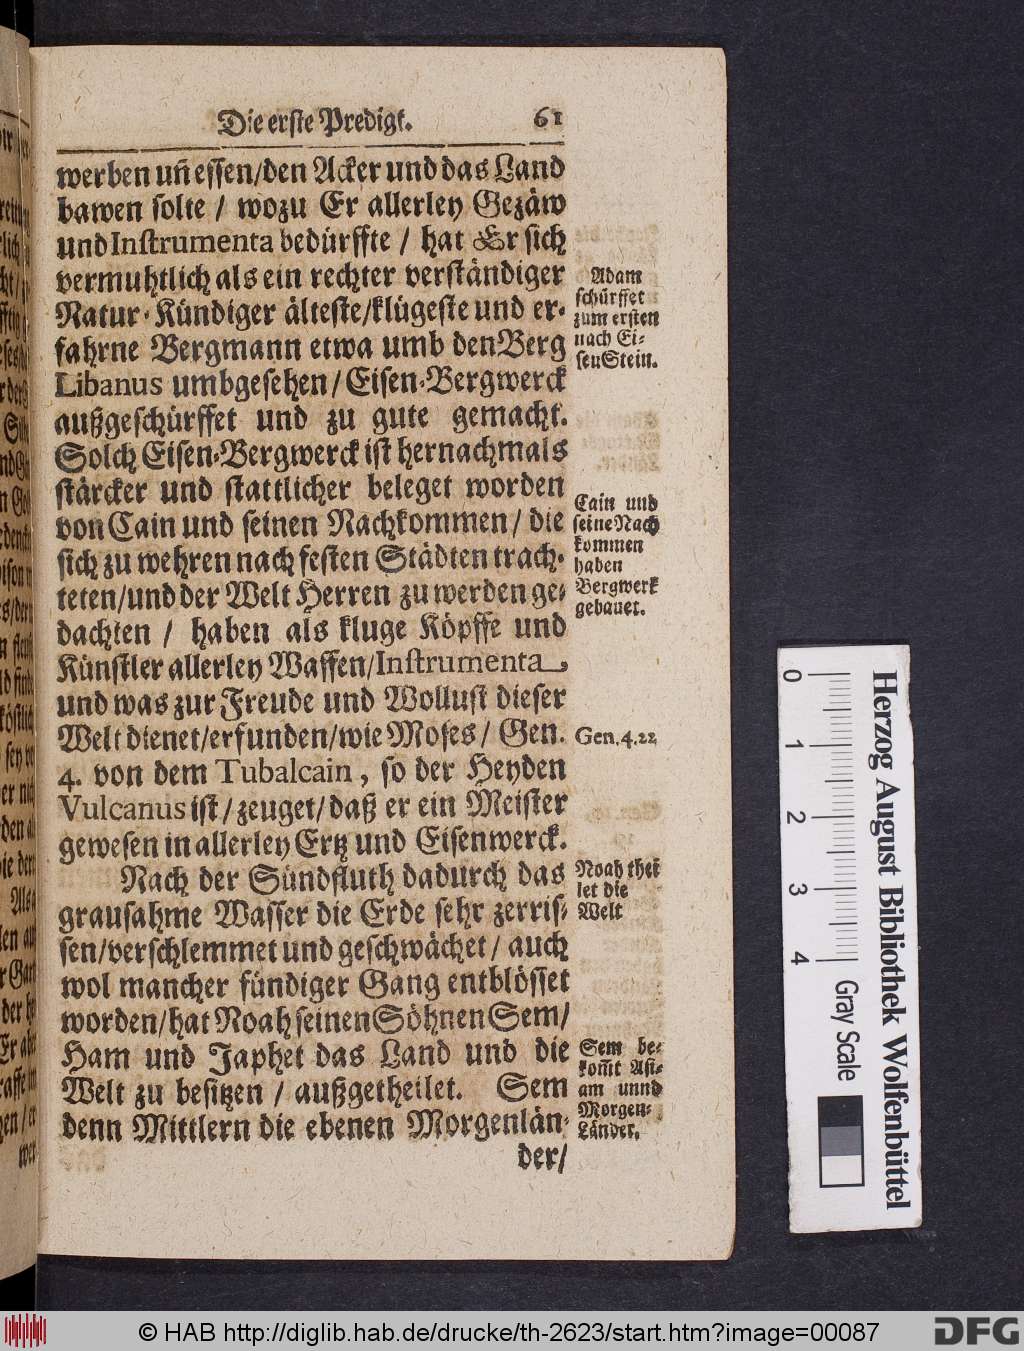 Die erste Predigt. 61
werben uñ essen/den Acker und das Land
bawen solte / wozu Er allerley Gezäw
und Instrumenta bedürffte / hat Er sich
vermuhtlich als ein rechter verständiger
Natur-Kündiger älteste/klügeste und er-
fahrne Bergmann etwa umb den Berg
Libanus umbgesehen/Eisen-Bergwerck
außgeschürffet und zu gute gemacht.
Solch Eisen-Bergwerck ist hernachmals
stärcker und stattlicher beleget worden
von Cain und seinen Nachkommen/ die
sich zu wehren nach festen Städten trach-
teten/und der Welt Herren zu werden ge-
dachten / haben als kluge Köpffe und
Künstler allerley Waffen/Instrumenta,
und was zur Freude und Wollust dieser
Welt dienet/erfunden/wie Moses/ Gen.
4. von dem Tubalcain, so der Heyden
Vulcanus ist/zeuget/daß er ein Meister
gewesen in allerley Ertz und Eisenwerck.
Nach der Sündfluth dadurch das
grausahme Wasser die Erde sehr zerris-
sen/verschlemmet und geschwächet/ auch
wol mancher fündiger Gang entblösset
worden/hat Noah seinen Söhnen Sem/
Ham und Japhet das Land und die
Welt zu besitzen / außgetheilet. Sem
denn Mittlern die ebenen Morgenlän-
der/
Adam
schürffet
zum ersten
nach Ei-
senStein.
Cain und
seine Nach
kommen
haben
Bergwerk
gebauet.
Gen. 4. 22
Noah thei
let die
Welt
Sem be-
komt Asi-
am unnd
Morgen-
Länder.
0 1 2 3 4
Gray Scale
Herzog August Bibliothek Wolfenbüttel
© HAB http://diglib.hab.de/drucke/th-2623/start.htm?image=00087
DFG